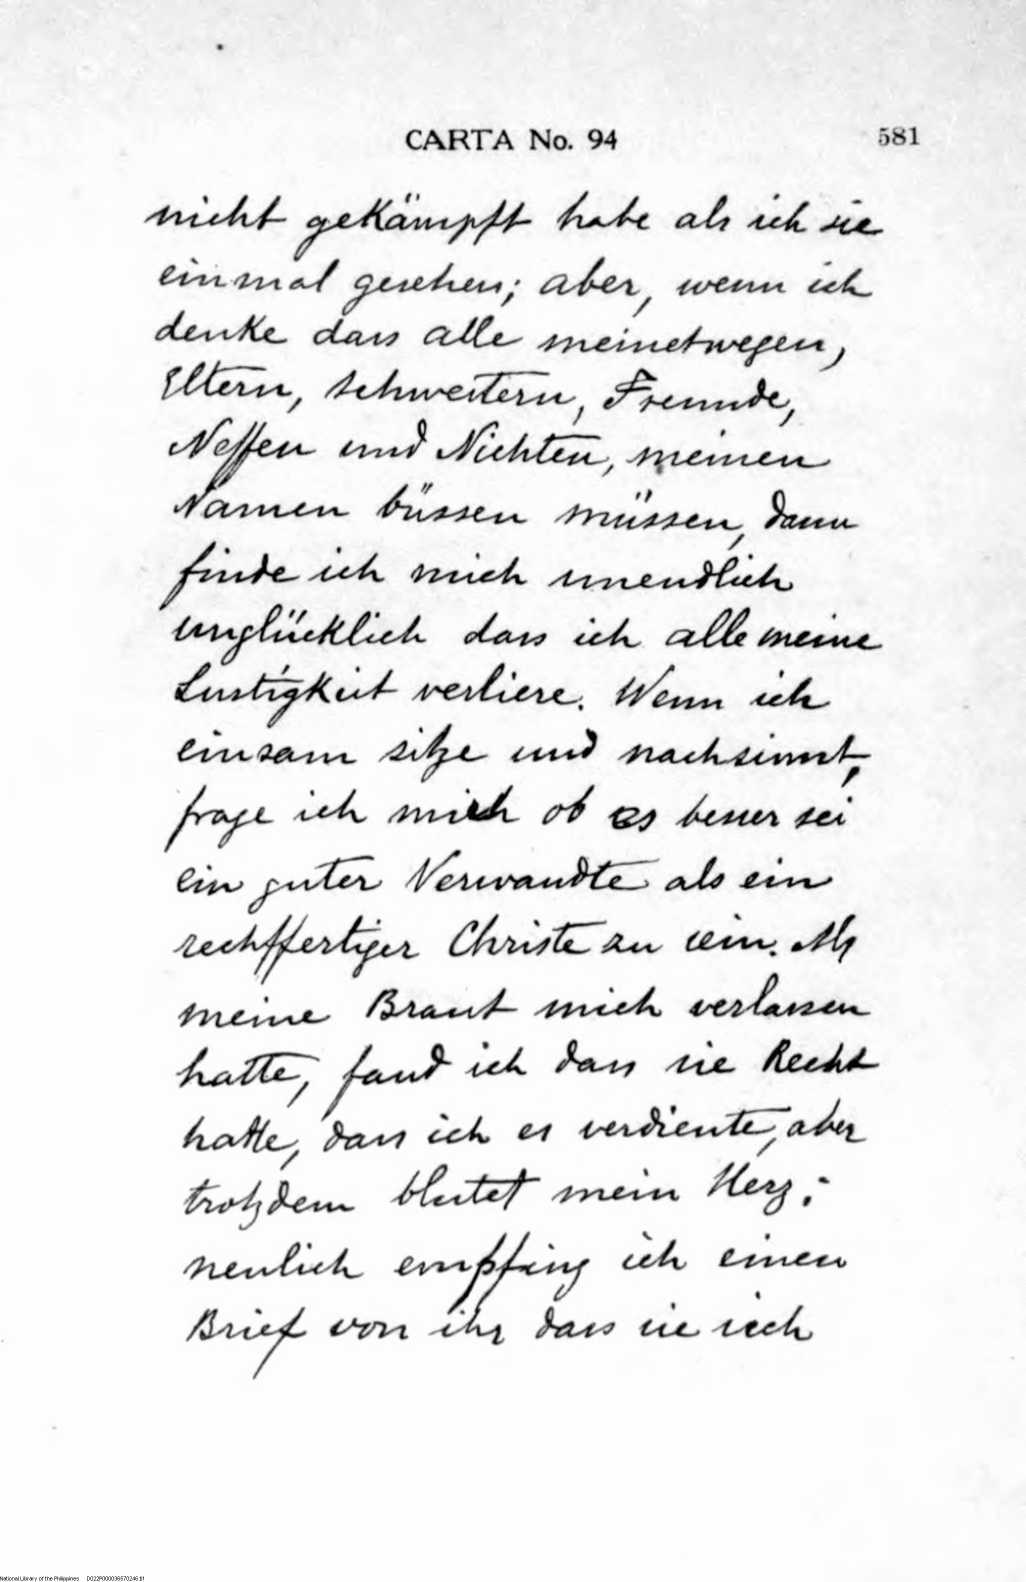 CARTA No. 94 581
nicht gekämpft habe als ich sie
einmal gesehen; aber, wenn ich
denke dass alle meinetwegen,
Eltern, Schwestern, Freunde,
Neffen und Nichten, meinen
Namen büssen müssen, dann
finde ich mich unendlich
unglücklich dass ich alle meine
Lustigkeit verliere. Wenn ich
einsam sitze und nachsinnt,
frage ich mich ob es besser sei
ein guter Verwandte als ein
rechffertiger Christe zu sein. Als
meine Braut mich verlassen
hatte, fand ich dass sie Recht
hatte, dass ich es verdiente, aber
trotzdem blutet mein Herz;-
neulich empfing ich einen
Brief von ihr dass sie sich
National Library of the Philippines D022R000036570246.tif